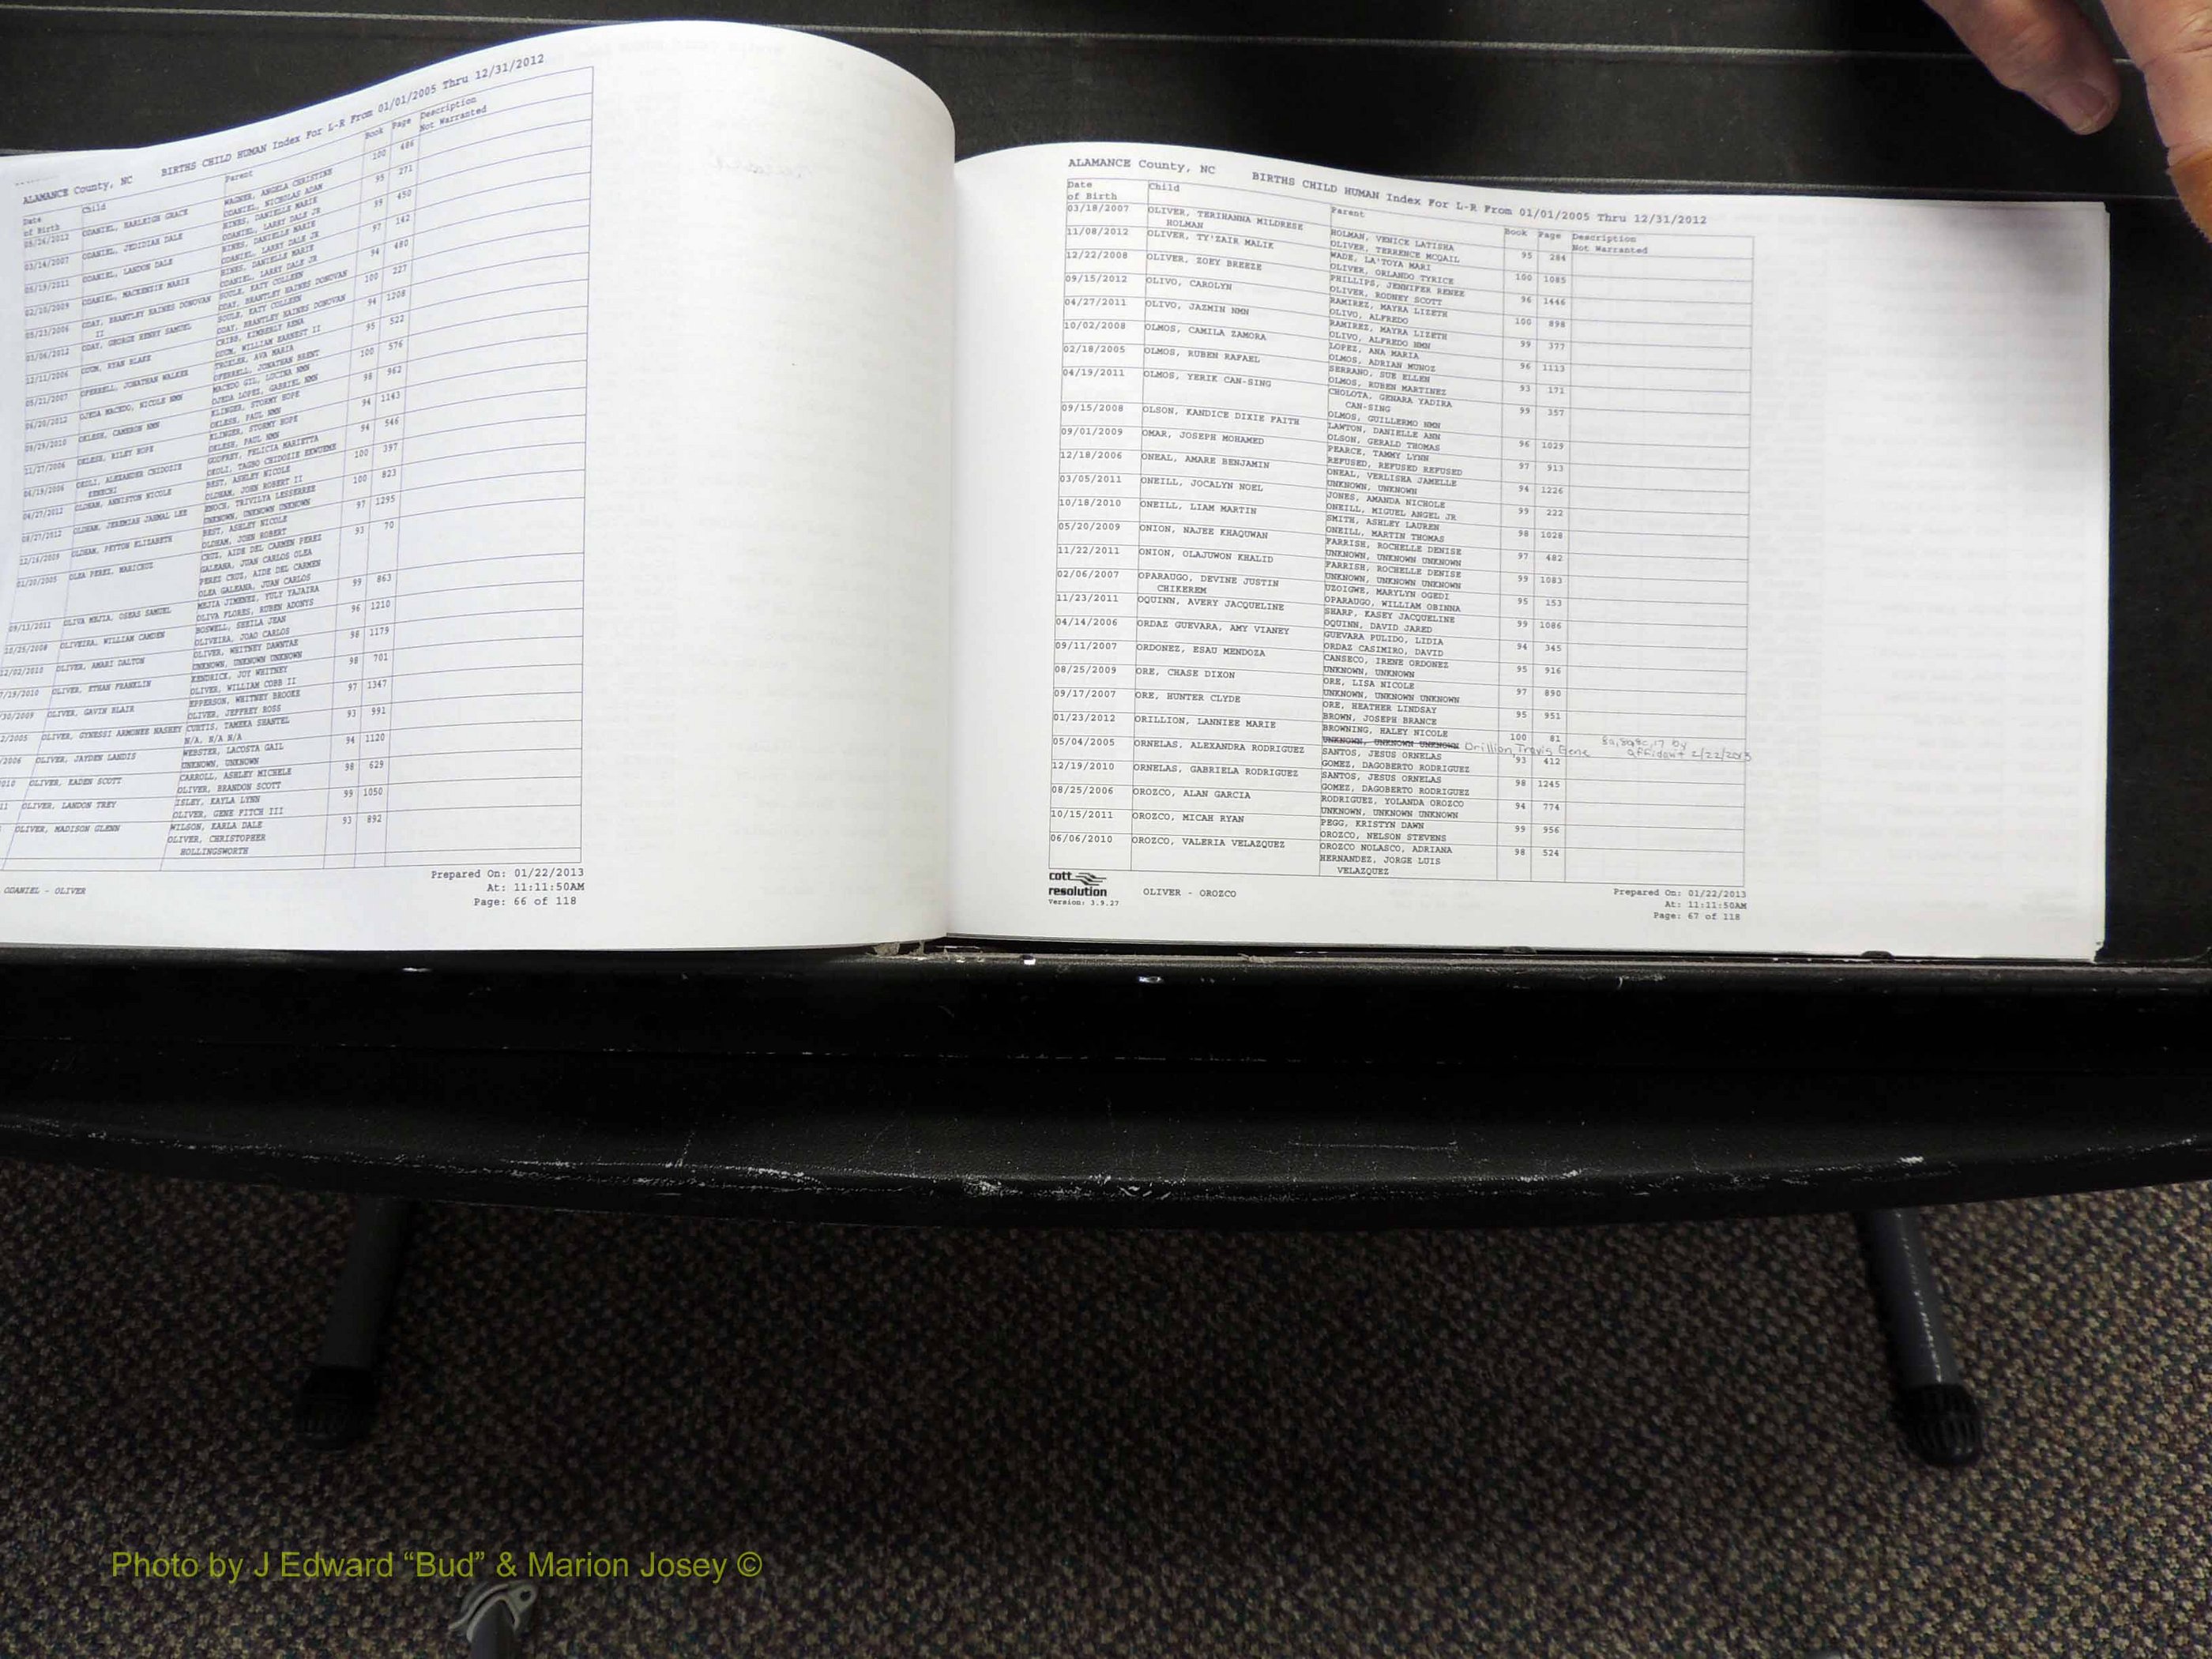 ALAMANCE County, NC BIRTHS CHILD HUMAN Index For L-R From 01/01/2005 Thru 12/31/2012
Date of Birth Child Parent Book Page Description Not Warranted
05/26/2012 ODANIEL, HARLEIGH GRACE WAGNER, ANGELA CHRISTINE 100 486
ODANIEL, NICHOLAS ADAM
03/14/2007 ODANIEL, JEDIDIAH DALE HINES, DANIELLE MARIE 95 271
ODANIEL, LARRY DALE JR
05/19/2011 ODANIEL, LANDON DALE HINES, DANIELLE MARIE 99 450
ODANIEL, LARRY DALE JR
02/20/2009 ODANIEL, MACKENZIE MARIE HINES, DANIELLE MARIE 97 142
ODANIEL, LARRY DALE JR
05/23/2006 ODAY, BRANTLEY HAINES DONOVAN SOULE, KATY COLLEEN 94 480
II ODAY, BRANTLEY HAINES DONOVAN
03/06/2012 ODAY, GEORGE HENRY SAMUEL SOULE, KATY COLLEEN 100 227
ODAY, BRANTLEY HAINES DONOVAN
12/11/2006 ODUM, RYAN BLAKE CRIBB, KIMBERLY RENA 94 1208
ODUM, WILLIAM EARNEST II
05/21/2007 OFERRELL, JONATHAN WALKER TROXLER, AVA MARIA 95 522
OFERRELL, JONATHAN BRENT
06/20/2012 OJEDA MACEDO, NICOLE NMN MACEDO GIL, LUCINA NMN 100 576
OJEDA LOPEZ, GABRIEL NMN
09/29/2010 OKLESH, CAMERON NMN KLINGER, STORMY HOPE 98 962
OKLESH, PAUL NMN
11/27/2006 OKLESH, RILEY HOPE KLINGER, STORMY HOPE 94 1143
OKLESH, PAUL NMN
06/19/2006 OKOLI, ALEXANDER CHIDOZIE GODFREY, FELICIA MARIETTA 94 546
OKOLI, TAGBO CHIDOZIE EKWUEME
04/27/2012 OLDHAM, ANNISTON NICOLE BEST, ASHLEY NICOLE 100 397
OLDHAM, JOHN ROBERT II
08/27/2012 OLDHAM, JEREMIAH JAHMAL LEE ENOCH, TRIVILYA LESSERREE 100 823
UNKNOWN, UNKNOWN UNKNOWN
12/16/2009 OLDHAM, PEYTON ELIZABETH BEST, ASHLEY NICOLE 97 1295
OLDHAM, JOHN ROBERT
01/20/2005 OLEA PEREZ, MARICRUZ CRUZ, AIDE DEL CARMEN PEREZ 93 70
GALEANA, JUAN CARLOS OLEA
PEREZ CRUZ, AIDE DEL CARMEN
OLEA GALEANA, JUAN CARLOS
09/13/2011 OLIVA MEJIA, OSEAS SAMUEL MEJIA JIMENEZ, YULY YAJAIRA 99 863
OLIVA FLORES, RUBEN ADONYS
10/25/2008 OLIVEIRA, WILLIAM CAMDEN BOSWELL, SHEILA JEAN 96 1210
OLIVEIRA, JOAO CARLOS
12/02/2010 OLIVER, AMARI DALTON OLIVER, WHITNEY DAWNTAE 98 1179
UNKNOWN, UNKNOWN UNKNOWN
7/19/2010 OLIVER, ETHAN FRANKLIN KENDRICK, JOY WHITNEY 98 701
OLIVER, WILLIAM COBB II
/30/2009 OLIVER, GAVIN BLAIR EPPERSON, WHITNEY BROOKE 97 1347
OLIVER, JEFFREY ROSS
2/2005 OLIVER, GYNESSI ARMONEE NASHEY CURTIS, TAMEKA SHANTEL 93 991
N/A, N/A N/A
/2006 OLIVER, JAYDEN LANDIS WEBSTER, LACOSTA GAIL 94 1120
UNKNOWN, UNKNOWN
010 OLIVER, KADEN SCOTT CARROLL, ASHLEY MICHELE 98 629
OLIVER, BRANDON SCOTT
11 OLIVER, LANDON TREY ISLEY, KAYLA LYNN 99 1050
OLIVER, GENE FITCH III
OLIVER, MADISON GLENN WILSON, KARLA DALE 93 892
OLIVER, CHRISTOPHER
HOLLINGSWORTH
ODANIEL - OLIVER
Prepared On: 01/22/2013
At: 11:11:50AM
Page: 66 of 118
ALAMANCE County, NC BIRTHS CHILD HUMAN Index For L-R From 01/01/2005 Thru 12/31/2012
Date of Birth Child Parent Book Page Description Not Warranted
03/18/2007 OLIVER, TERIHANNA MILDRESE HOLMAN, VENICE LATISHA 95 284
HOLMAN OLIVER, TERRENCE MCQAIL
11/08/2012 OLIVER, TY'ZAIR MALIK WADE, LA'TOYA MARI 100 1085
OLIVER, ORLANDO TYRICE
12/22/2008 OLIVER, ZOEY BREEZE PHILLIPS, JENNIFER RENEE 96 1446
OLIVER, RODNEY SCOTT
09/15/2012 OLIVO, CAROLYN RAMIREZ, MAYRA LIZETH 100 898
OLIVO, ALFREDO
04/27/2011 OLIVO, JAZMIN NMN RAMIREZ, MAYRA LIZETH 99 377
OLIVO, ALFREDO NMN
10/02/2008 OLMOS, CAMILA ZAMORA LOPEZ, ANA MARIA 96 1113
OLMOS, ADRIAN MUNOZ
02/18/2005 OLMOS, RUBEN RAFAEL SERRANO, SUE ELLEN 93 171
OLMOS, RUBEN MARTINEZ
04/19/2011 OLMOS, YERIK CAN-SING CHOLOTA, GENARA YADIRA 99 357
CAN-SING
OLMOS, GUILLERMO NMN
09/15/2008 OLSON, KANDICE DIXIE FAITH LAWTON, DANIELLE ANN 96 1029
OLSON, GERALD THOMAS
09/01/2009 OMAR, JOSEPH MOHAMED PEARCE, TAMMY LYNN 97 913
REFUSED, REFUSED REFUSED
12/18/2006 ONEAL, AMARE BENJAMIN ONEAL, VERLISHA JAMELLE 94 1226
UNKNOWN, UNKNOWN
03/05/2011 ONEILL, JOCALYN NOEL JONES, AMANDA NICHOLE 99 222
ONEILL, MIGUEL ANGEL JR
10/18/2010 ONEILL, LIAM MARTIN SMITH, ASHLEY LAUREN 98 1028
ONEILL, MARTIN THOMAS
05/20/2009 ONION, NAJEE KHAQUWAN FARRISH, ROCHELLE DENISE 97 482
UNKNOWN, UNKNOWN UNKNOWN
11/22/2011 ONION, OLAJUWON KHALID FARRISH, ROCHELLE DENISE 99 1083
UNKNOWN, UNKNOWN UNKNOWN
02/06/2007 OPARAUGO, DEVINE JUSTIN UZOIGWE, MARYLYN OGEDI 95 153
CHIKEREM OPARAUGO, WILLIAM OBINNA
11/23/2011 OQUINN, AVERY JACQUELINE SHARP, KASEY JACQUELINE 99 1086
OQUINN, DAVID JARED
04/14/2006 ORDAZ GUEVARA, AMY VIANEY GUEVARA PULIDO, LIDIA 94 345
ORDAZ CASIMIRO, DAVID
09/11/2007 ORDONEZ, ESAU MENDOZA CANSECO, IRENE ORDONEZ 95 916
UNKNOWN, UNKNOWN
08/25/2009 ORE, CHASE DIXON ORE, LISA NICOLE 97 890
UNKNOWN, UNKNOWN UNKNOWN
09/17/2007 ORE, HUNTER CLYDE ORE, HEATHER LINDSAY 95 951
BROWN, JOSEPH BRANCE
01/23/2012 ORILLION, LANNIEE MARIE BROWNING, HALEY NICOLE 100 81
UNKNOWN, UNKNOWN UNKNOWN Orillion, Travis Gene by affidavit 2/22/2013
05/04/2005 ORNELAS, ALEXANDRA RODRIGUEZ SANTOS, JESUS ORNELAS 93 412
GOMEZ, DAGOBERTO RODRIGUEZ
12/19/2010 ORNELAS, GABRIELA RODRIGUEZ SANTOS, JESUS ORNELAS 98 1245
GOMEZ, DAGOBERTO RODRIGUEZ
08/25/2006 OROZCO, ALAN GARCIA RODRIGUEZ, YOLANDA OROZCO 94 774
UNKNOWN, UNKNOWN UNKNOWN
10/15/2011 OROZCO, MICAH RYAN PEGG, KRISTYN DAWN 99 956
OROZCO, NELSON STEVENS
06/06/2010 OROZCO, VALERIA VELAZQUEZ OROZCO NOLASCO, ADRIANA 98 524
HERNANDEZ, JORGE LUIS
VELAZQUEZ
cott
resolution
Version: 3.9.27
OLIVER - OROZCO
Prepared On: 01/22/2013
At: 11:11:50AM
Page: 67 of 118
Photo by J Edward “Bud” & Marion Josey ©